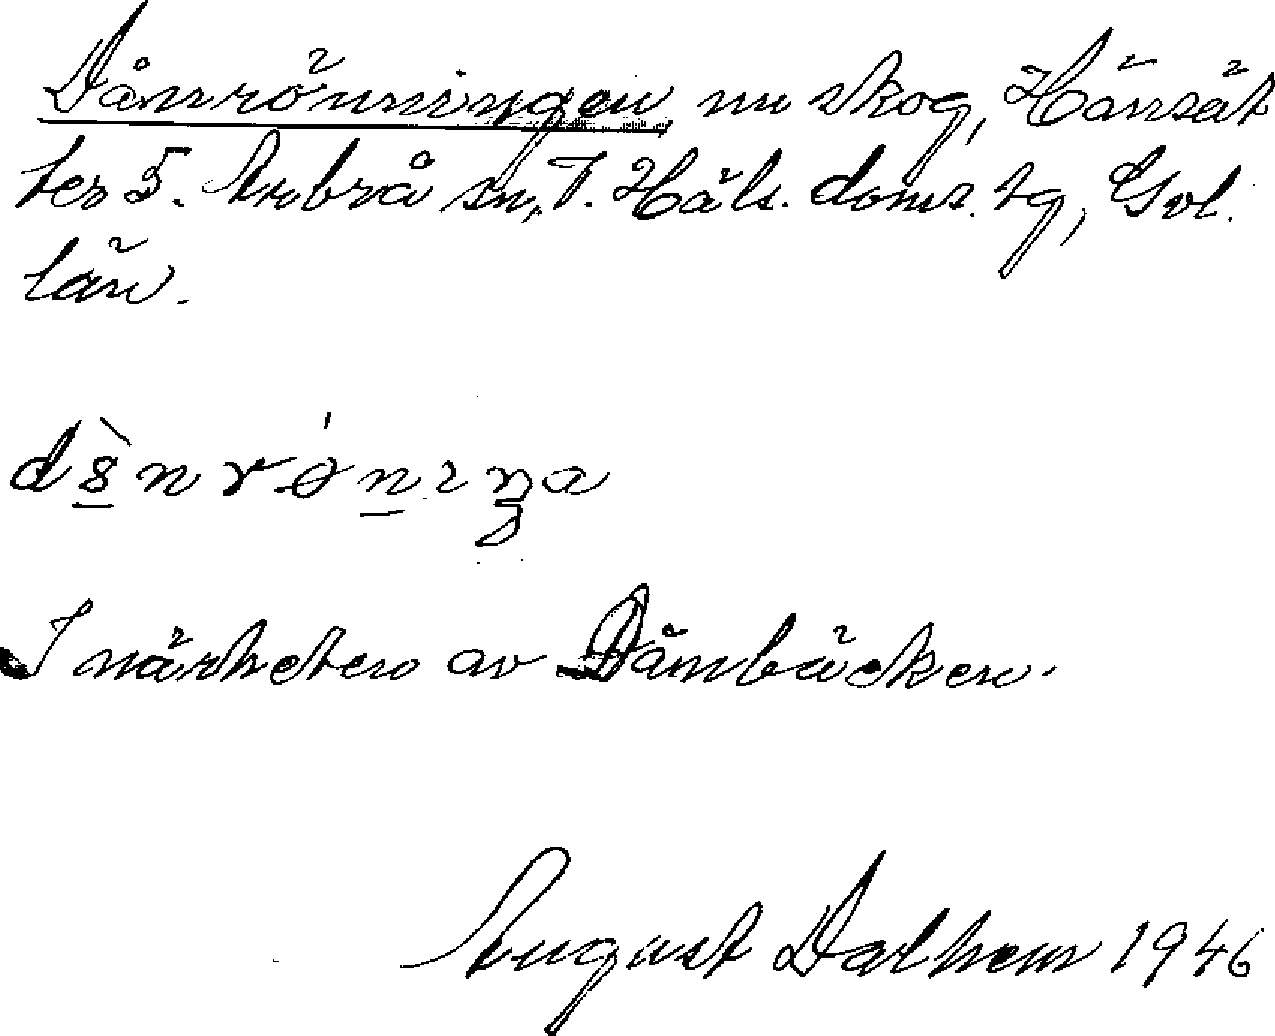 Dånrönningen nu skog, Hänsät
ter 5. Arbrå sn, V. Häls. doms. tg, Gvl.
län.
I närheten av Dåmbäcken.
August Dalhem 1946